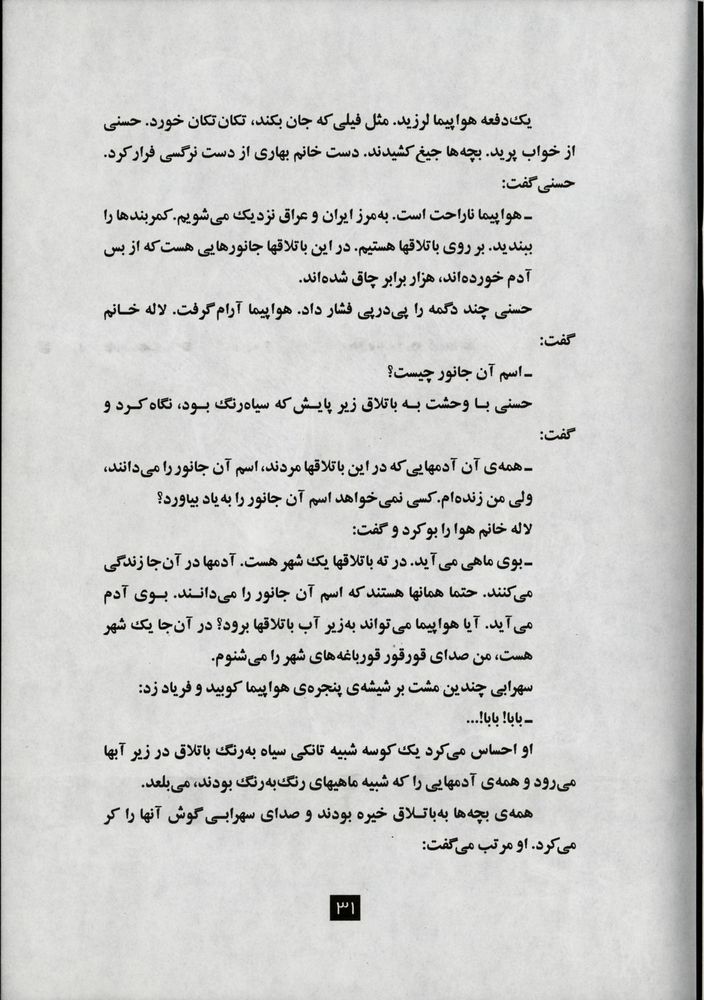 یک‌دفعه هواپیما لرزید. مثل فیلی که جان بکند، تکان‌تکان خورد. حسنی
از خواب پرید. بچه‌ها جیغ کشیدند. دست خانم بهاری از دست نرگسی فرار کرد.
حسنی گفت:
ـ هواپیما ناراحت است. به‌مرز ایران و عراق نزدیک می‌شویم. کمربندها را
ببندید. بر روی باتلاقها هستیم. در این باتلاقها جانورهایی هست که از بس
آدم خورده‌اند، هزار برابر چاق شده‌اند.
حسنی چند دگمه را پی‌درپی فشار داد. هواپیما آرام گرفت. لاله خانم
گفت:
ـ اسم آن جانور چیست؟
حسنی با وحشت به باتلاق زیر پایش که سیاه‌رنگ بود، نگاه کرد و
گفت:
ـ همه‌ی آن آدمهایی که در این باتلاقها مردند، اسم آن جانور را می‌دانند،
ولی من زنده‌ام. کسی نمی‌خواهد اسم آن جانور را به‌یاد بیاورد؟
لاله خانم هوا را بو کرد و گفت:
ـ بوی ماهی می‌آید. در ته باتلاقها یک شهر هست. آدمها در آن‌جا زندگی
می‌کنند. حتما همانها هستند که اسم آن جانور را می‌دانند. بوی آدم
می‌آید. آیا هواپیما می‌تواند به‌زیر آب باتلاقها برود؟ در آن‌جا یک شهر
هست، من صدای قورقور قورباغه‌های شهر را می‌شنوم.
سهرابی چندین مشت بر شیشه‌ی پنجره‌ی هواپیما کوبید و فریاد زد:
ـ بابا! بابا!...
او احساس می‌کرد یک کوسه شبیه تانکی سیاه به‌رنگ باتلاق در زیر آبها
می‌رود و همه‌ی آدمهایی را که شبیه ماهیهای رنگ‌به‌رنگ بودند، می‌بلعد.
همه‌ی بچه‌ها به‌باتلاق خیره بودند و صدای سهرابی گوش آنها را کر
می‌کرد. او مرتب می‌گفت:
۳۱